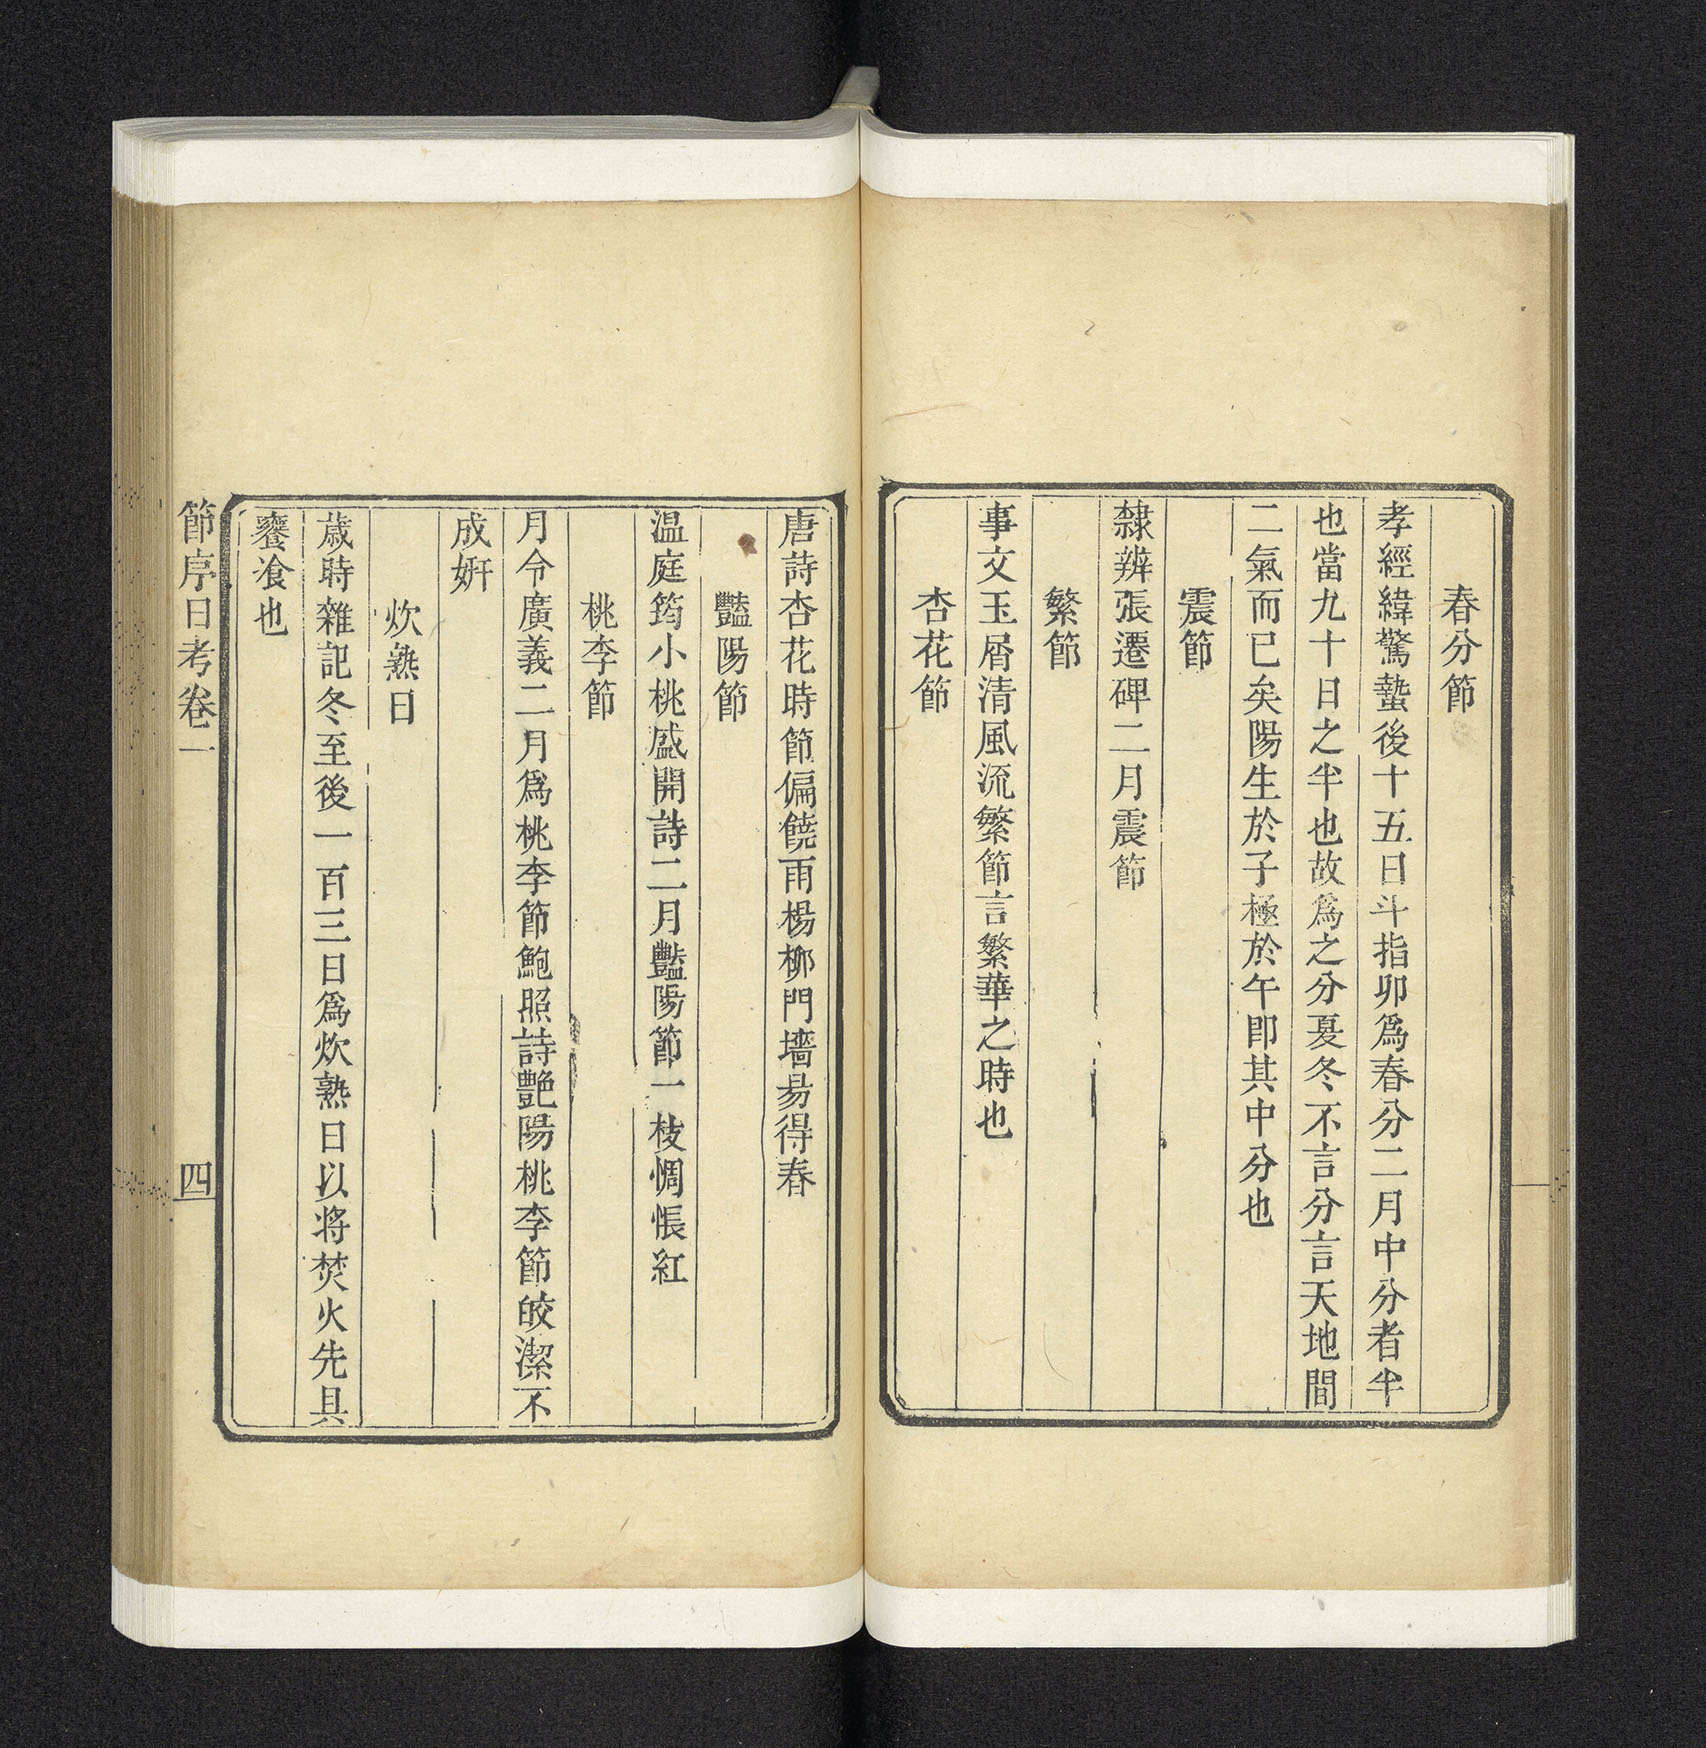 春分節
孝經緯驚蟄後十五日斗指卯爲春分二月中分者半
也當九十日之半也故爲之分夏冬不言分言天地間
二氣而已矣陽生於子極於午卽其中分也
震節
隸辨張遷碑二月震節
繁節
事文玉屑清風流繁節言繁華之時也
杏花節
唐詩杏花時節偏饒雨楊柳門墻易得春
豔陽節
温庭筠小桃盛開詩二月豔陽節一枝惆悵紅
桃李節
月令廣義二月爲桃李節鮑照詩艶陽桃李節皎潔不
成妍
炊熟日
歲時雜記冬至後一百三日爲炊熟日以将焚火先具
饔飡也
節序日考卷一
四